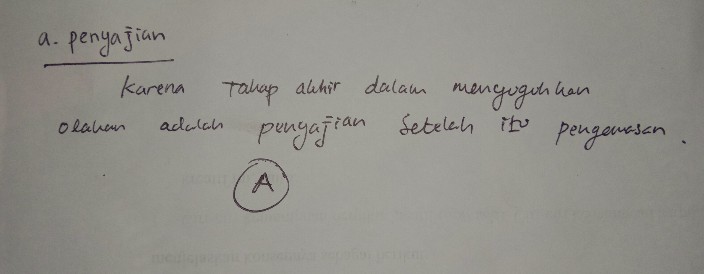 a. penyajian
karena Tahap akhir dalam menyuguhkan
olahan adalah penyajian setelah itu pengemasan.
A